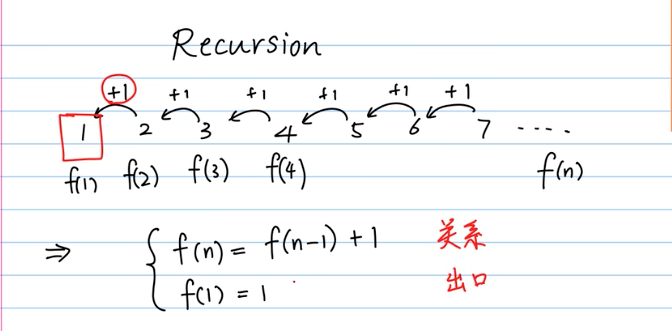 Recursion
+1 +1 +1 +1 +1 +1
1 2 3 4 5 6 7 ....
f(1) f(2) f(3) f(4) f(n)
⇒ { f(n) = f(n-1) + 1 关系
f(1) = 1 出口